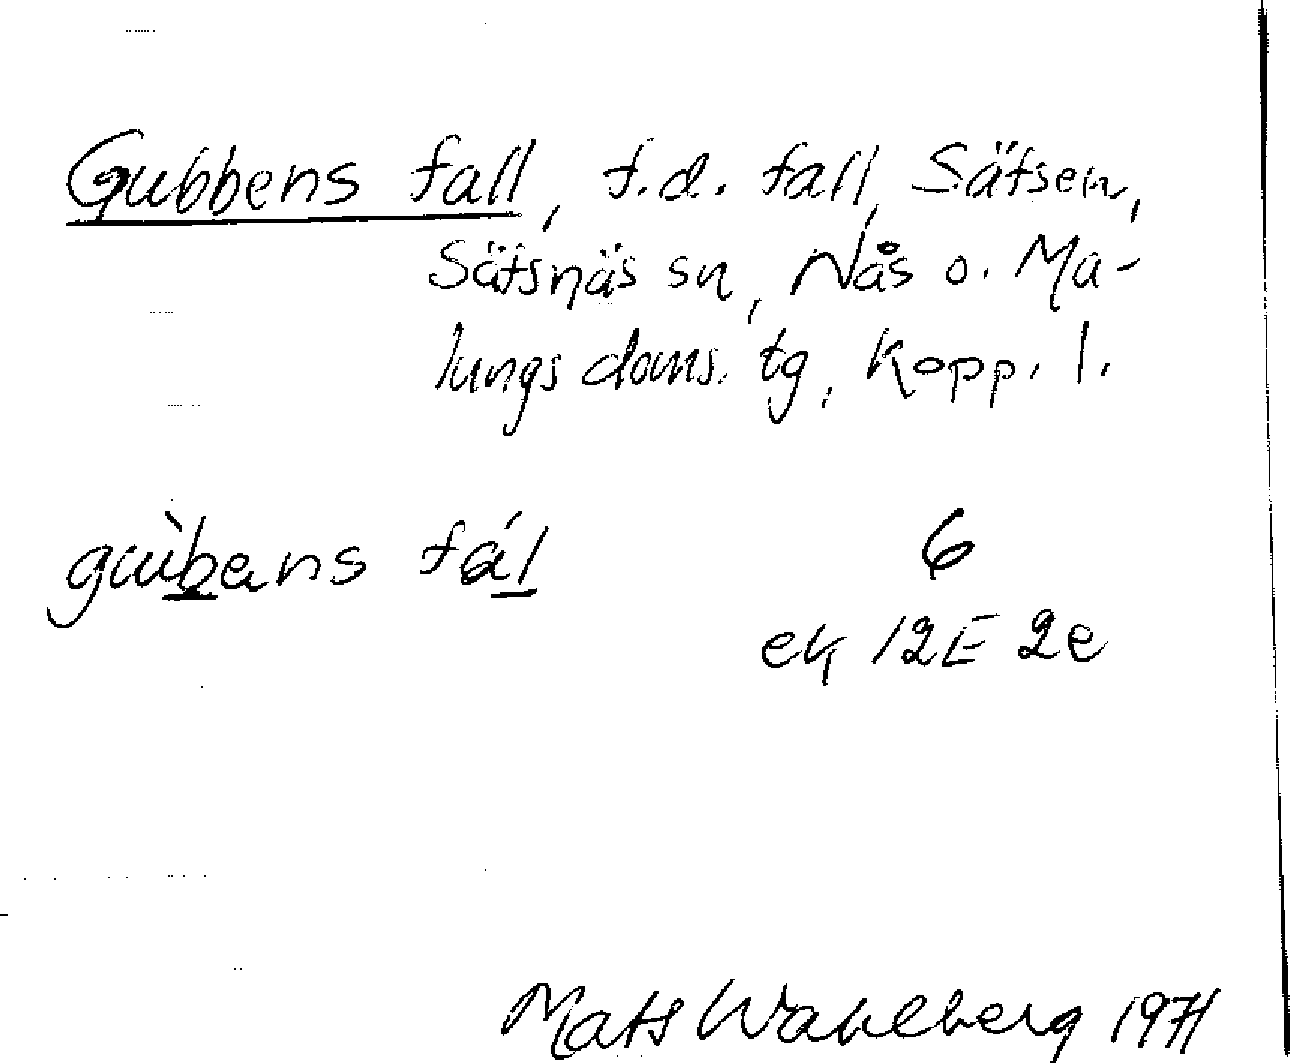 Gubbens fall, f.d. fall, Sätsen,
Sätsnäs sn, Nås o. Ma-
lungs doms. tg, Kopp. l.
gub̲ans fál̲
6
ek 12E 2e
Mats Wahlberg 1971